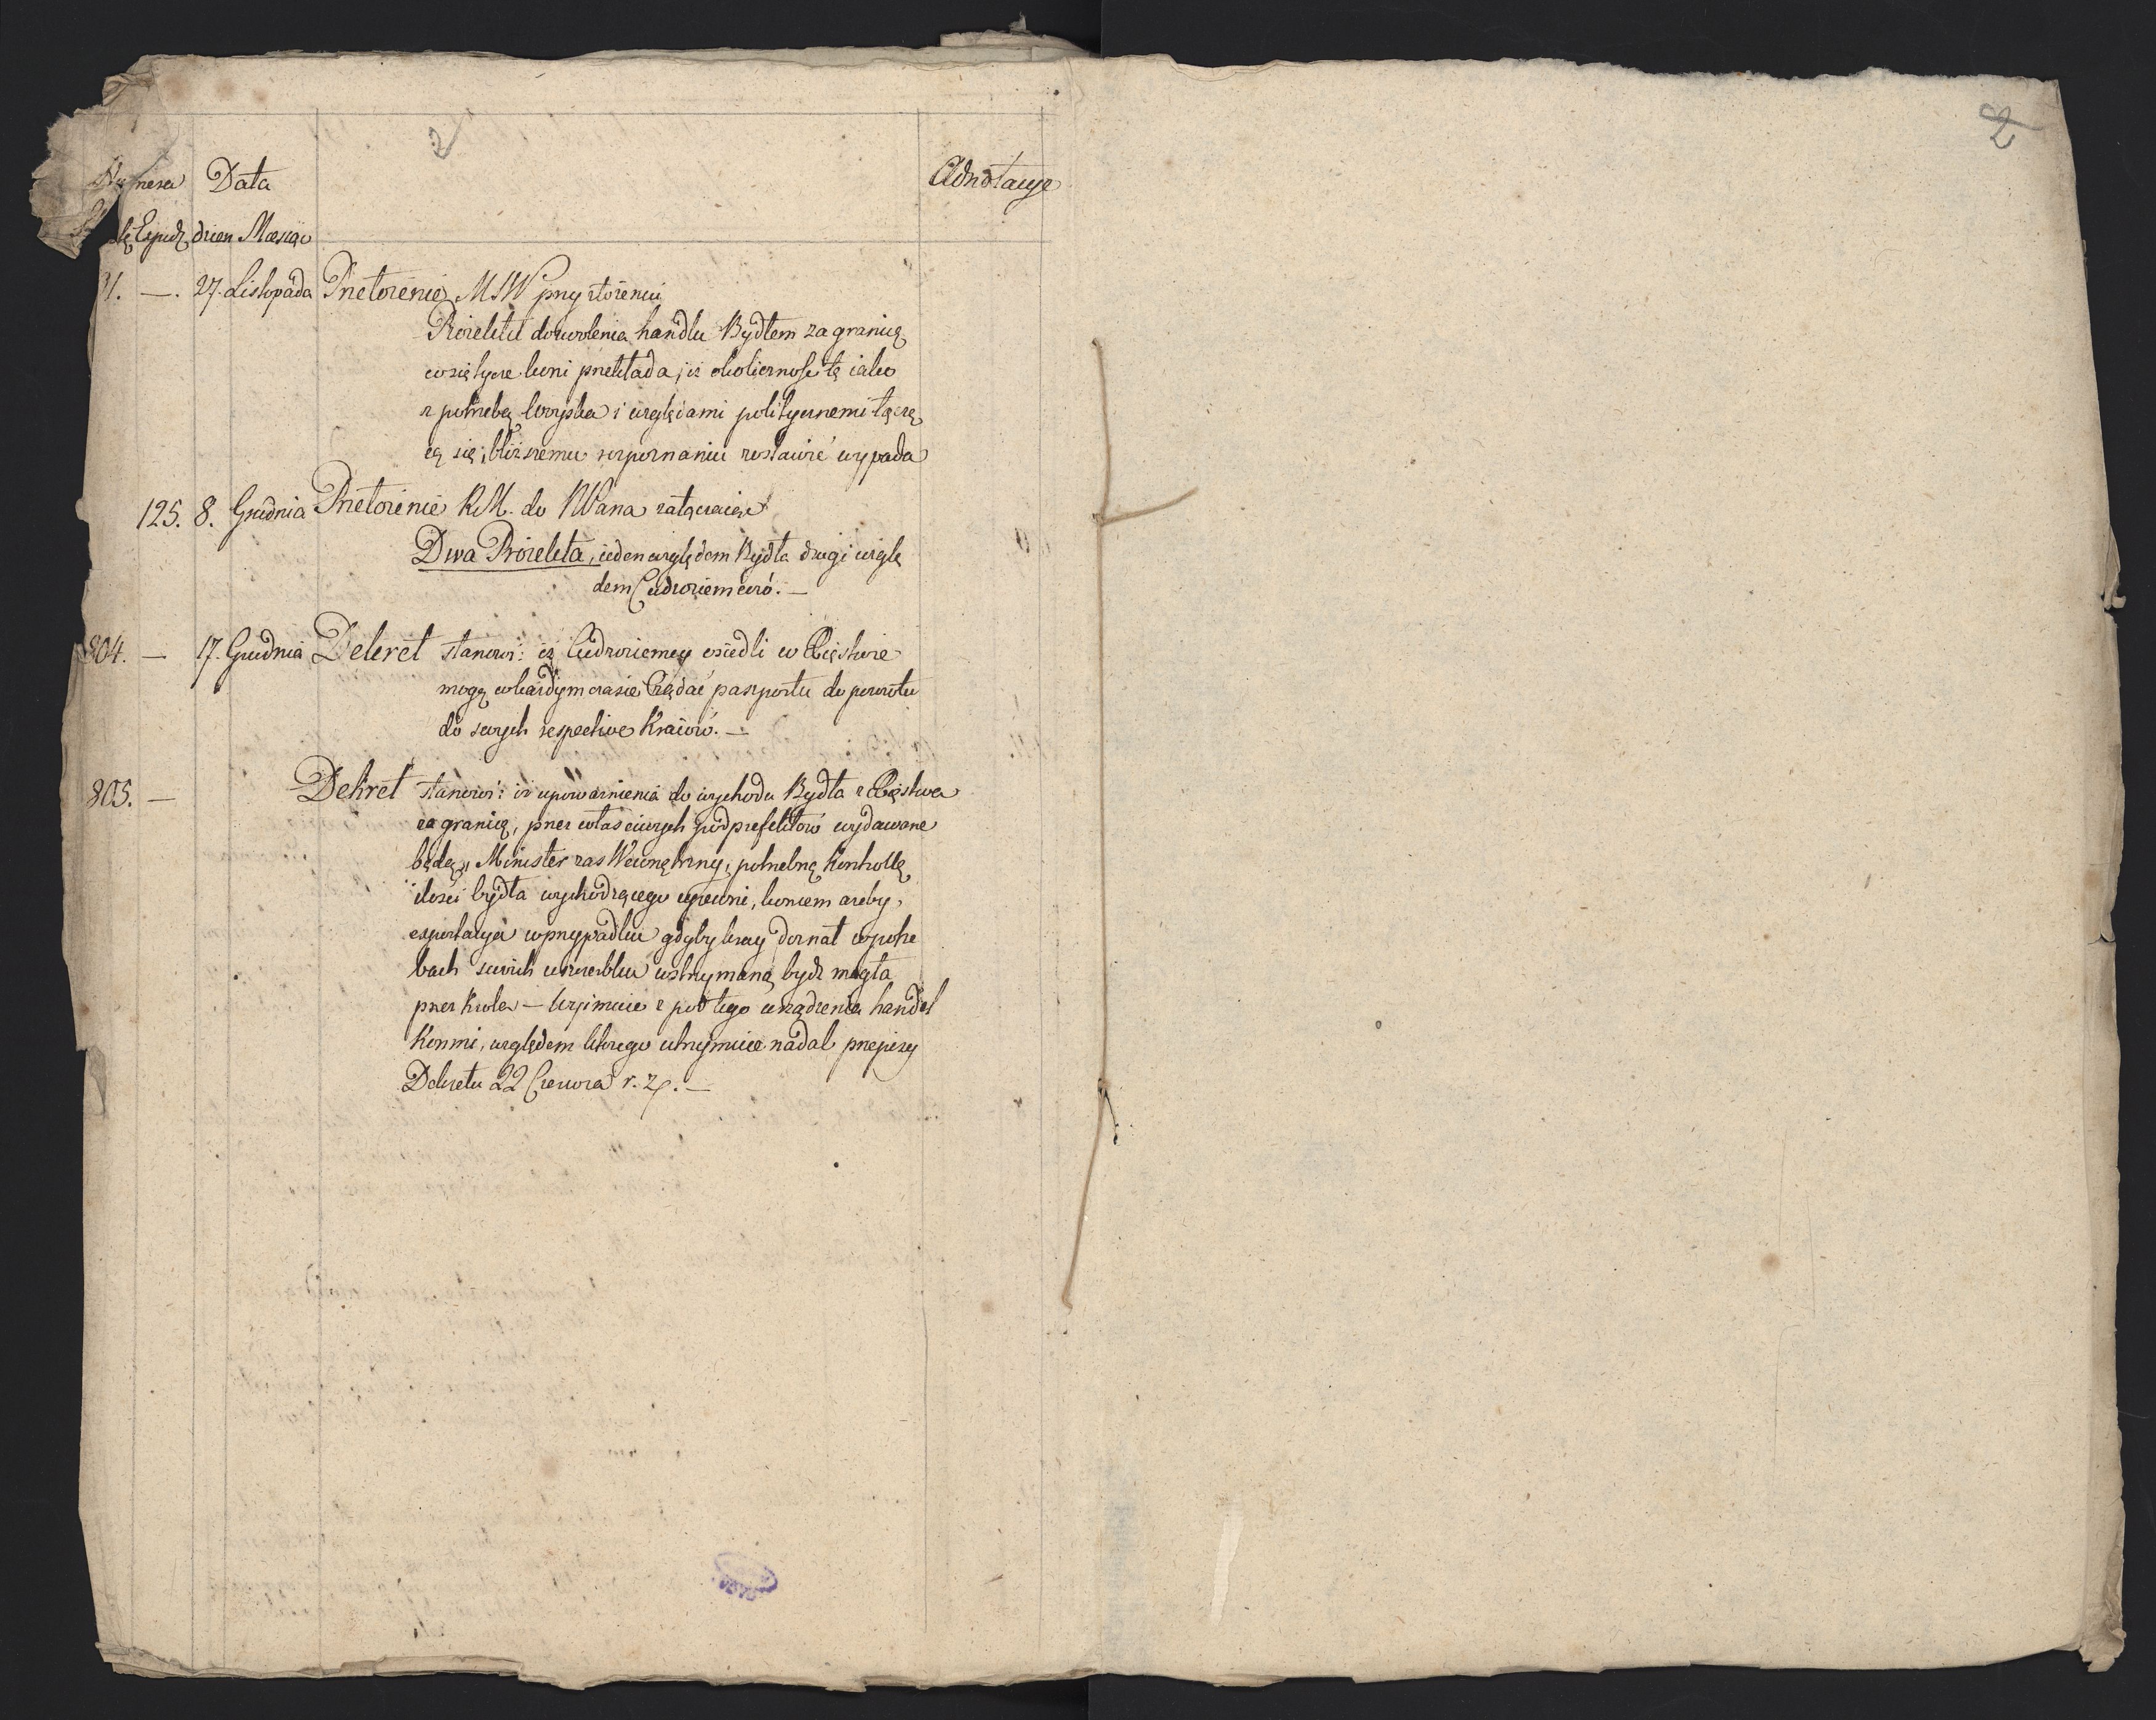 2
2
Numera Data Adnotacye
Expedz dzien Miesiąc
31. —. 27. Listopada Przełożenie MSW przy złożeniu
Proiektu dozwolenia handlu Bydłem za granicę
co się tycze koni przekłada, iż okoliczność tę iako
z potrzebą woyska i względami politycznemi łączą
cą się, bliższemu rozpoznaniu zostawić wypada
125. 8. Grudnia Przełożenie R.M. do NPana załączaiące
Dwa Proiekta, ieden względem Bydła drugi wzglę
dem Cudzoziemców. —
804. — 17. Grudnia Dekret stanowi: iż Cudzoziemcy osiedli w Xięstwie
mogą w każdym czasie żądać paszportu do powrotu
do swych respective Kraiów. —
805. — Dekret stanowi: iż upoważnienia do wychodu Bydła z Xięstwa
za granicę, przez właściwych podprefektów wydawane
będą, Minister zas Wewnętrzny, potrzebną Kontrollę
ilości bydła wychodzącego upewni, koncem ażeby,
exportacya w przypadku gdyby kray doznał w potrze
bach swoich uszczerbku wstrzymaną bydź mogła
przez Krola — Wyimuie z pod tego urządzenia handel
Konmi, względem ktorego utrzymuie nadal przepisy
Dekretu 22 Czerwca r. z. —